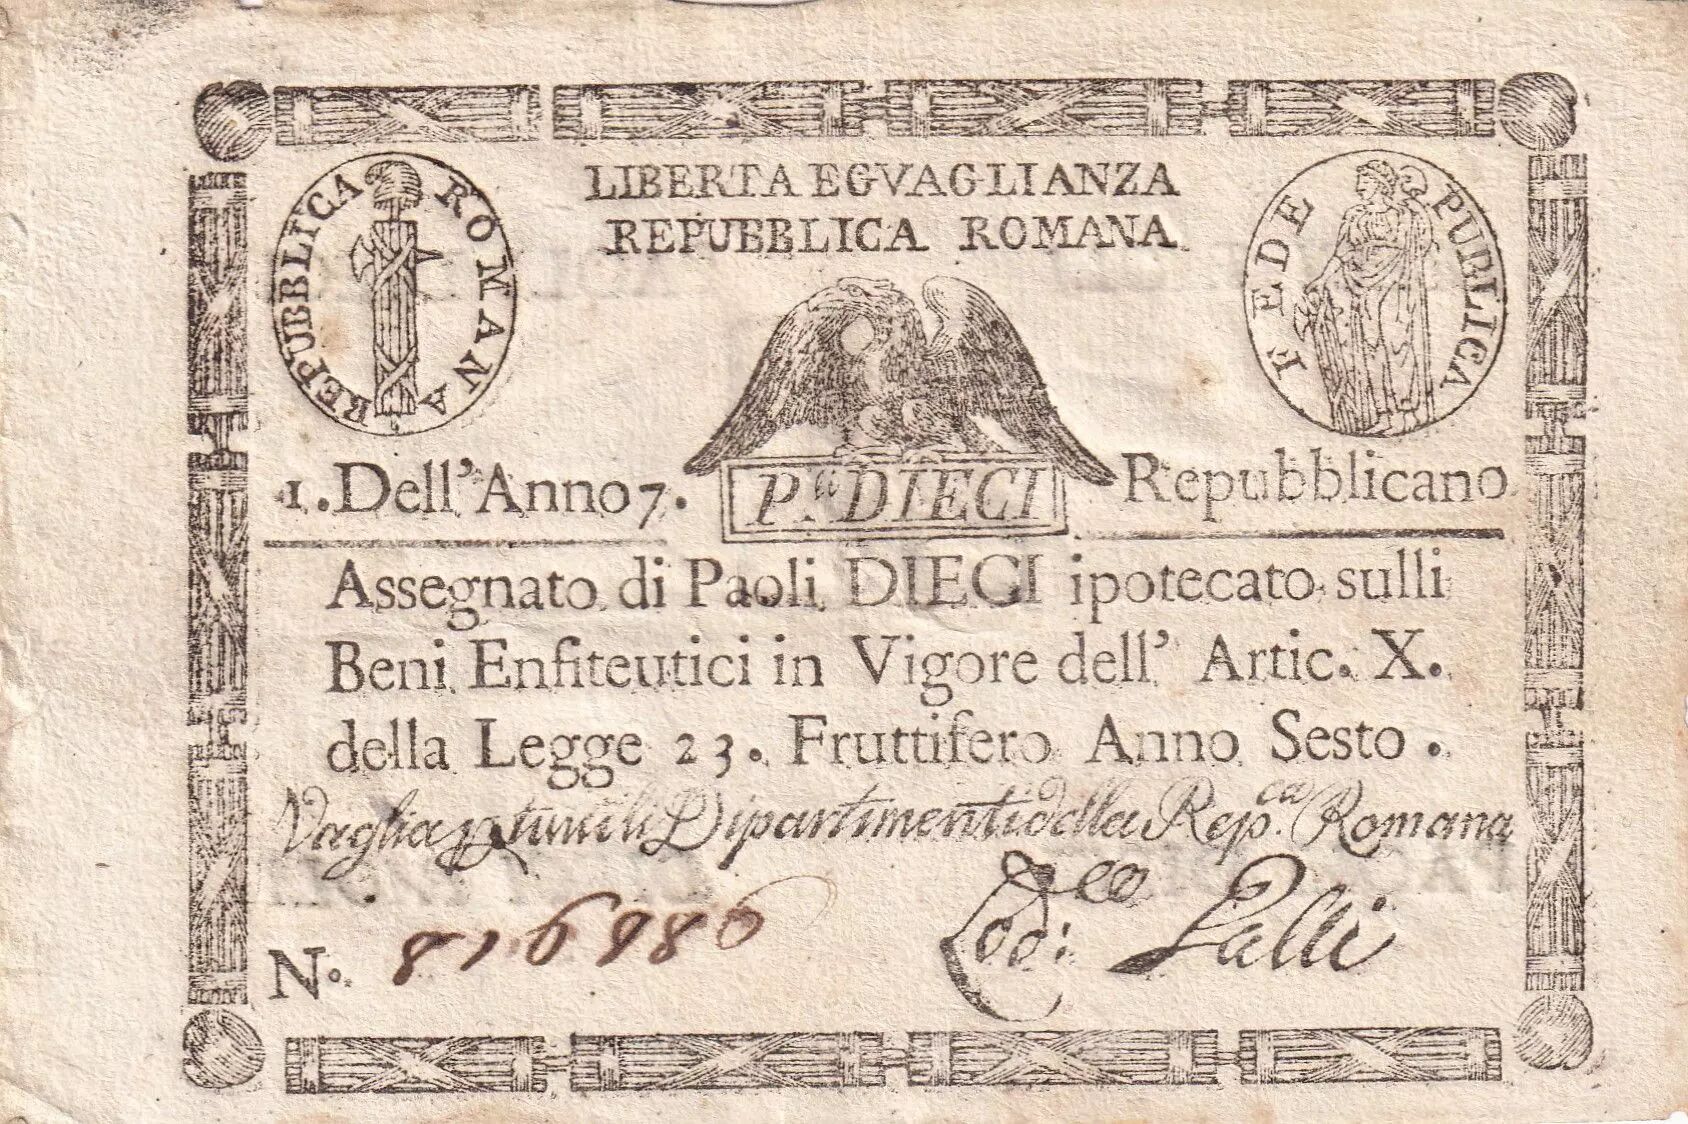 LIBERTA EGVAGLIANZA
REPUBBLICA ROMANA
REPUBBLICA ROMANA
FEDE PUBLICA
1. Dell' Anno 7.
P.li DIECI
Repubblicano
Assegnato di Paoli DIECI ipotecato sulli
Beni Enfiteutici in Vigore dell' Artic. X.
della Legge 23. Fruttifero Anno Sesto.
Vaglia tutti li Dipartimenti della Rep.ca Romana
N.o
Lodi: Galli